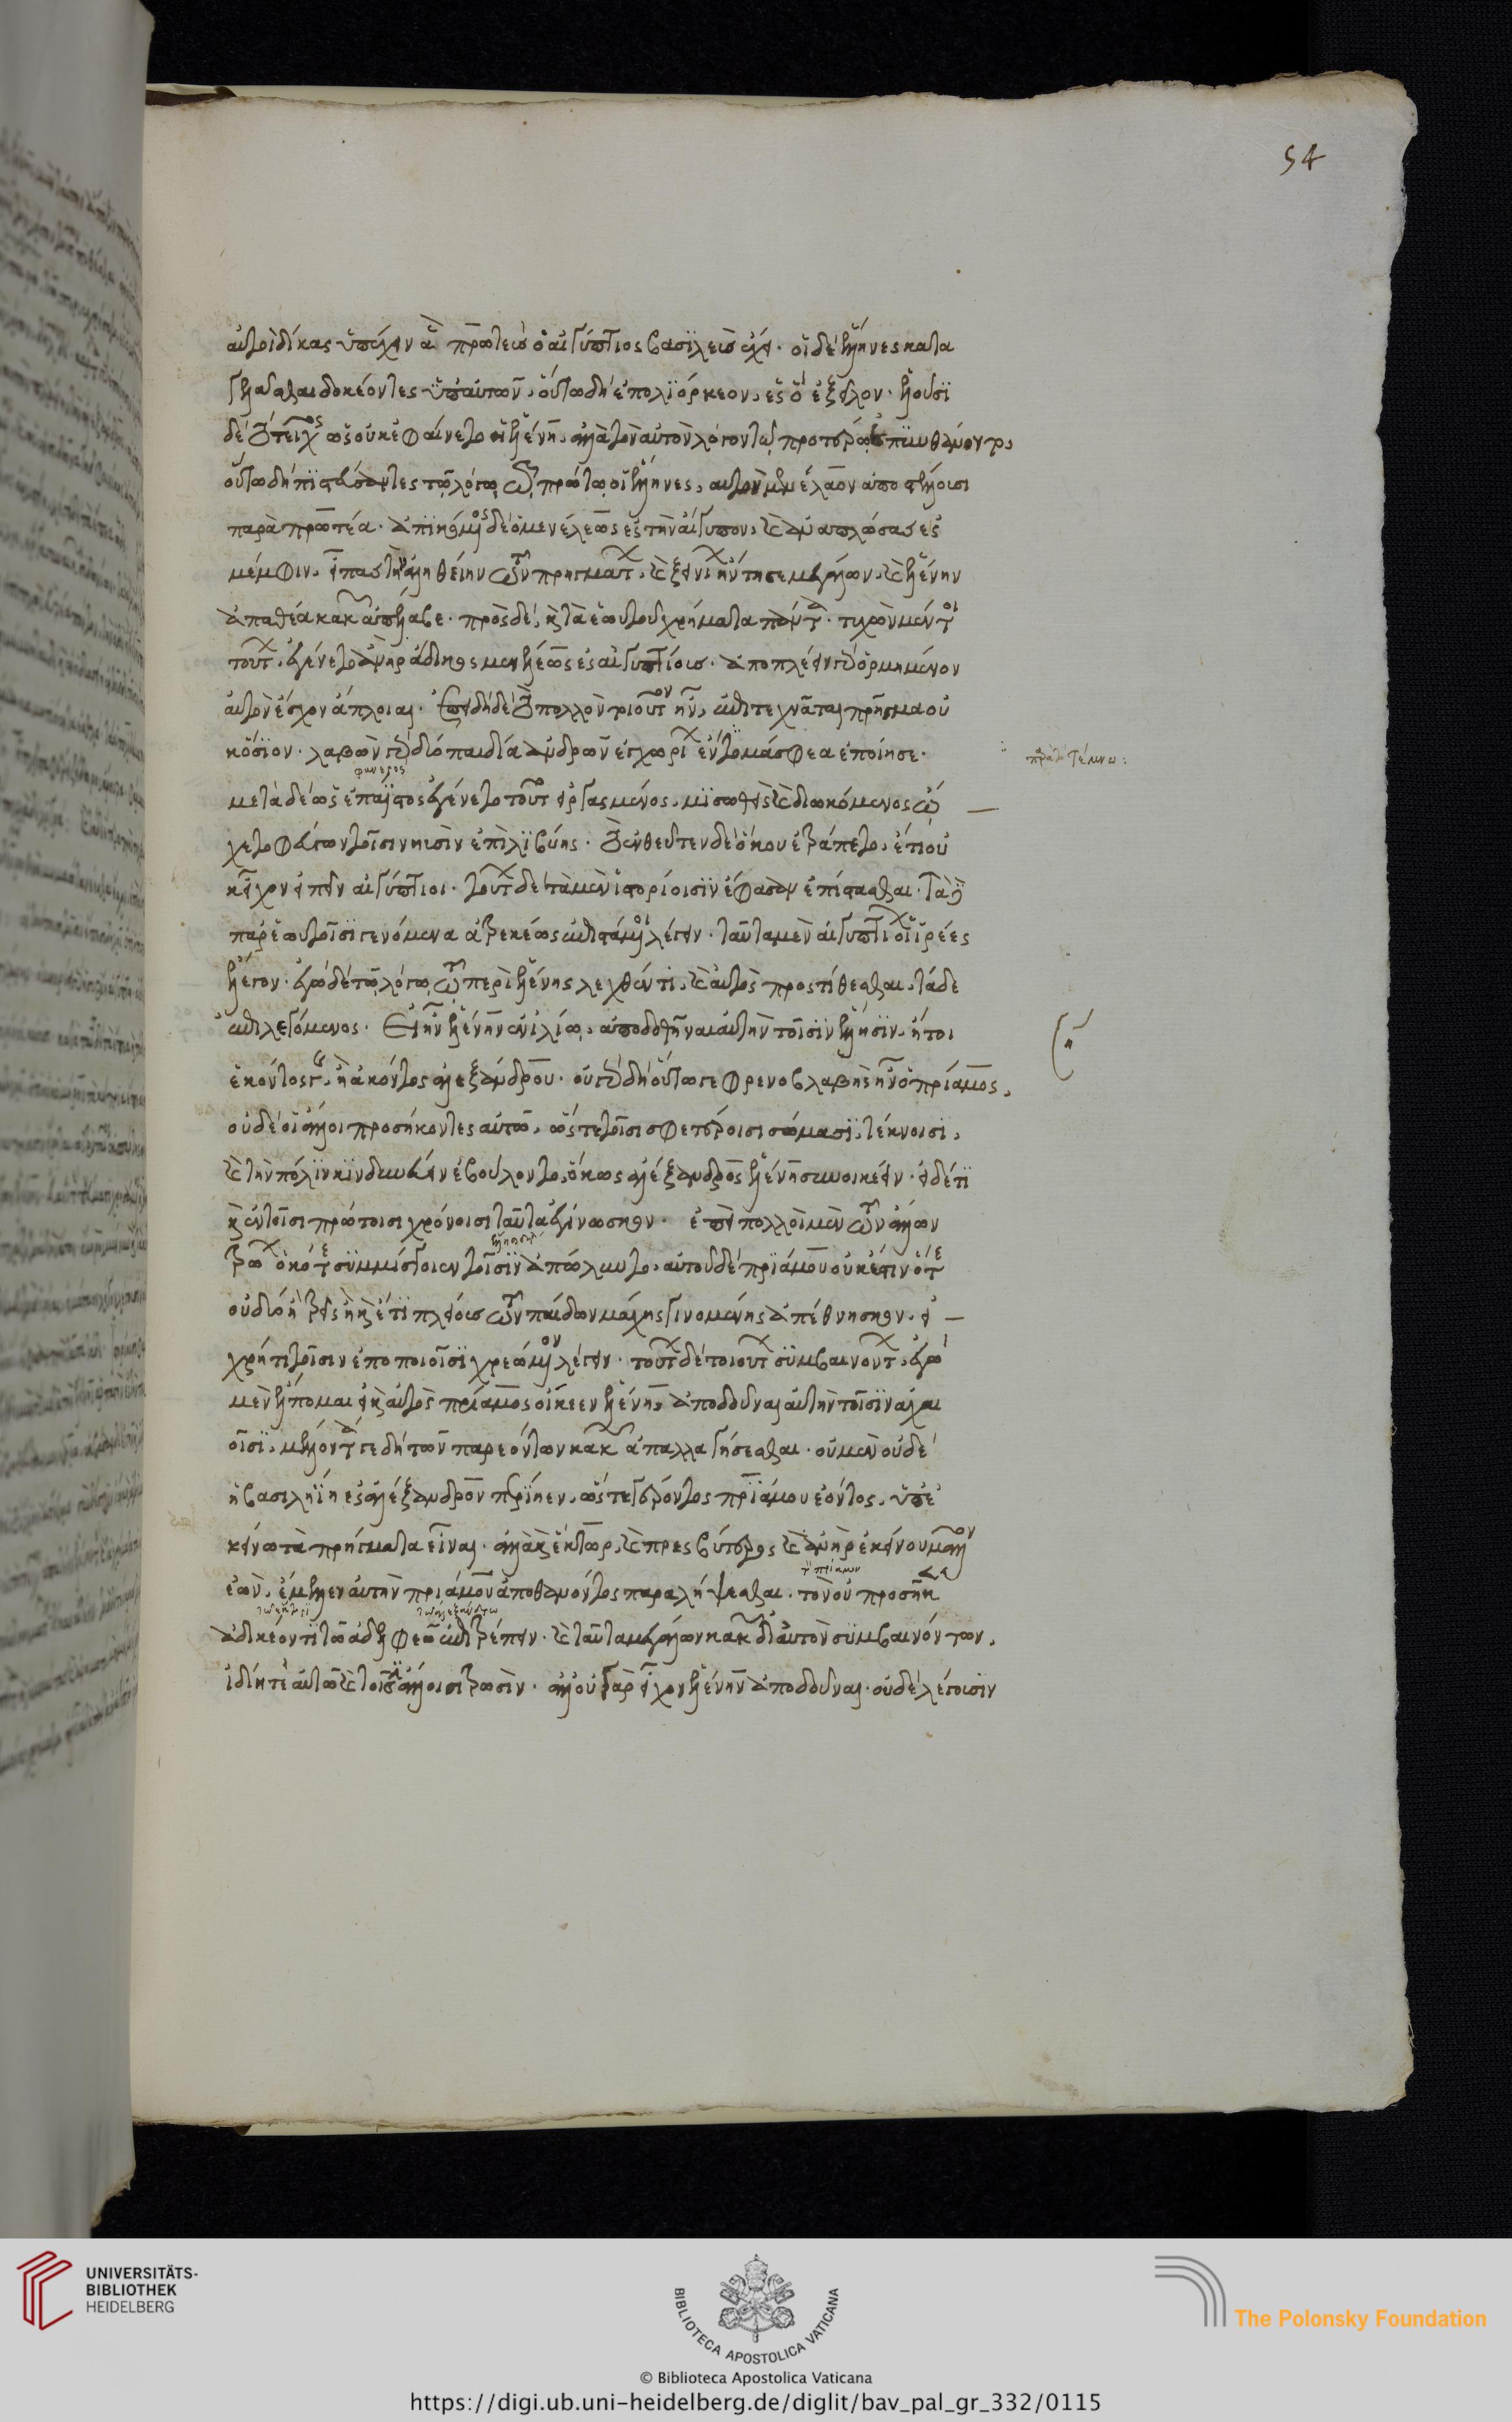 αὐτοὶ δίκας ὑπέχειν ἃ πρωτεὺς ὁ αἰγύπτιος βασιλεὺς ἔχει. οἱ δὲ ἕλληνες κατα
γελᾶσθαι δοκέοντες ὑπ' αὐτῶν, οὕτω δὴ ἐπολιόρκεον, ἐς ὃ ἐξεῖλον. ἑλοῦσι
δὲ τὸ τεῖχος ὡς οὐκ ἐφαίνετο ἡ ἑλένη, ἀλλὰ τὸν αὐτὸν λόγον τῷ προτέρῳ ἐπυνθάνοντο,
οὕτω δὴ πιστεύσαντες τῷ λόγῳ τῷ πρώτῳ οἱ ἕλληνες, αὐτὸν μενέλαον ἀποστέλλουσι
παρὰ πρωτέα. ἀπικόμενος δὲ ὁ μενέλεως ἐς τὴν αἴγυπτον, καὶ ἀναπλώσας ἐς
μέμφιν, εἴπας τὴν ἀληθείην τῶν πρηγμάτων, καὶ ξεινίων ἤντησε μεγάλων, καὶ ἑλένην
ἀπαθέα κακῶν ἀπέλαβε. πρὸς δὲ, καὶ τὰ ἑωυτοῦ χρήματα πάντα. τυχὼν μέντοι
τούτων, ἐγένετο ἀνὴρ ἄδικος μενέλεως ἐς αἰγυπτίους. ἀποπλέειν γὰρ ὁρμημένον
αὐτὸν ἔσχον ἄπλοιαι. ἐπειδὴ δὲ τοῦτο πολλὸν τοιοῦτον ἦν, ἐπιτεχνᾶται πρῆγμα οὐ
κ ὅσιον. λαβὼν γὰρ δύο παιδία ἀνδρῶν ἐπιχωρίων ἔντομά σφεα ἐποίησε.
παρὰ τὸ τέμνω:
φανερὸς
μετὰ δὲ ὡς ἐπάϊστος ἐγένετο τοῦτο ἐργασμένος, μισηθείς καὶ διωκόμενος ᾤ
χετο φεύγων τοῖσιν νηυσὶν ἐπὶ λιβύης. τὸ ἐνθεῦτεν δὲ ὅκου ἐτράπετο, ἔτι οὐ
κ εἶχον εἰπεῖν αἰγύπτιοι. τούτων δὲ τὰ μὲν ἱστορίῃσιν ἔφασαν ἐπίστασθαι. τὰ δὲ
παρ' ἑωυτοῖσι γενόμενα ἀτρεκέως ἐπιστάμενοι λέγειν. ταῦτα μὲν αἰγυπτίων οἱ ἱρέες
ἔλεγον. ἐγὼ δὲ τῷ λόγῳ τῷ περὶ ἑλένης λεχθέντι, καὶ αὐτὸς προστίθεμαι, τάδε
ἐπιλεγόμενος. εἰ ἦν ἑλένη ἐν ἰλίῳ, ἀποδοθῆναι αὐτὴν τοῖσιν ἕλλησιν, ἤτοι
ἑκόντος γε, ἢ ἀκόντος ἀλεξάνδρου. οὐ γὰρ δὴ οὕτω γε φρενοβλαβὴς ἦν ὁ πρίαμος,
οὐδὲ οἱ ἄλλοι προσήκοντες αὐτῷ, ὥστε τοῖσι σφετέροισι σώμασι, τέκνοισι,
καὶ τὴν πόλιν κινδυνεύειν ἐβούλοντο, ὅκως ἀλέξανδρος ἑλένῃ συνοικέῃ. εἰ δέ τι
καὶ ἐν τοῖσι πρώτοισι χρόνοισι ταῦτα ἐγίνωσκον. ἐπεὶ πολλοὶ μὲν τῶν ἄλλων
ἕλλησι
τρώων ὁκότε συμμίσγοιεν τοῖσιν ἀπώλλυντο, αὐτοῦ δὲ πριάμου οὐκ ἔστιν ὅτε
οὐ δύο ἢ τρεῖς ἢ καὶ ἔτι πλείους τῶν παίδων μάχης γινομένης ἀπέθνησκον. εἰ
χρή τι τοῖσιν ἐποποιοῖσι χρεώμενον λέγειν. τούτων δὲ τοιούτων συμβαινόντων, ἐγὼ
μὲν ἔλπομαι εἰ καὶ αὐτὸς πρίαμος οἴκεεν ἑλένῃ, ἀποδοῦναι αὐτὴν τοῖσιν ἀχαι
οῖσι, μέλλοντά γε δὴ τῶν παρεόντων κακῶν ἀπαλλαγήσεσθαι. οὐ μὲν οὐδὲ
ἡ βασιληίη ἐς ἀλέξανδρον περιήιεν, ὥστε γέροντος πριάμου ἐόντος, ἐπ' ἐ
κείνῳ τὰ πρήγματα εἶναι. ἀλλὰ καὶ ἕκτωρ, καὶ πρεσβύτερος καὶ ἀνὴρ ἐκείνου μᾶλλον
τὸν πρίαμον
ἐὼν, ἔμελλεν αὐτὴν πριάμου ἀποθανόντος παραλήψεσθαι. τὸν οὐ προσῆκε
τῷ ἕκτορι τῷ ἀλεξάνδρῳ
ἀδικέοντι τῷ ἀδελφεῷ ἐπιτρέπειν. καὶ ταῦτα μεγάλων κακῶν δι' αὐτὸν συμβαινόντων,
ἰδίῃ τε αὐτῷ καὶ τοῖσι ἄλλοισι τρωσὶν. ἀλλ' οὐ γὰρ εἶχον ἑλένην ἀποδοῦναι. οὐδὲ λέγουσιν
54
UNIVERSITÄTS-
BIBLIOTHEK
HEIDELBERG
BIBLIOTECA APOSTOLICA VATICANA
The Polonsky Foundation
© Biblioteca Apostolica Vaticana
https://digi.ub.uni-heidelberg.de/diglit/bav_pal_gr_332/0115